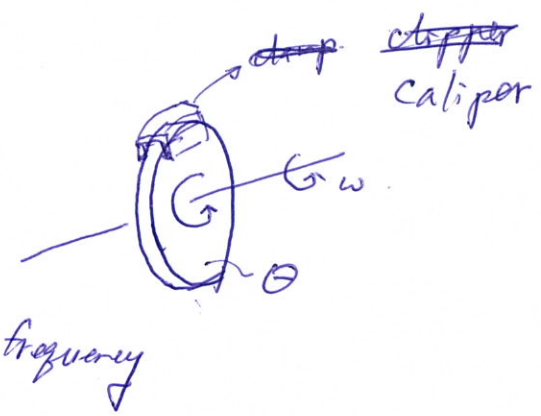 caliper
ω
θ
frequency